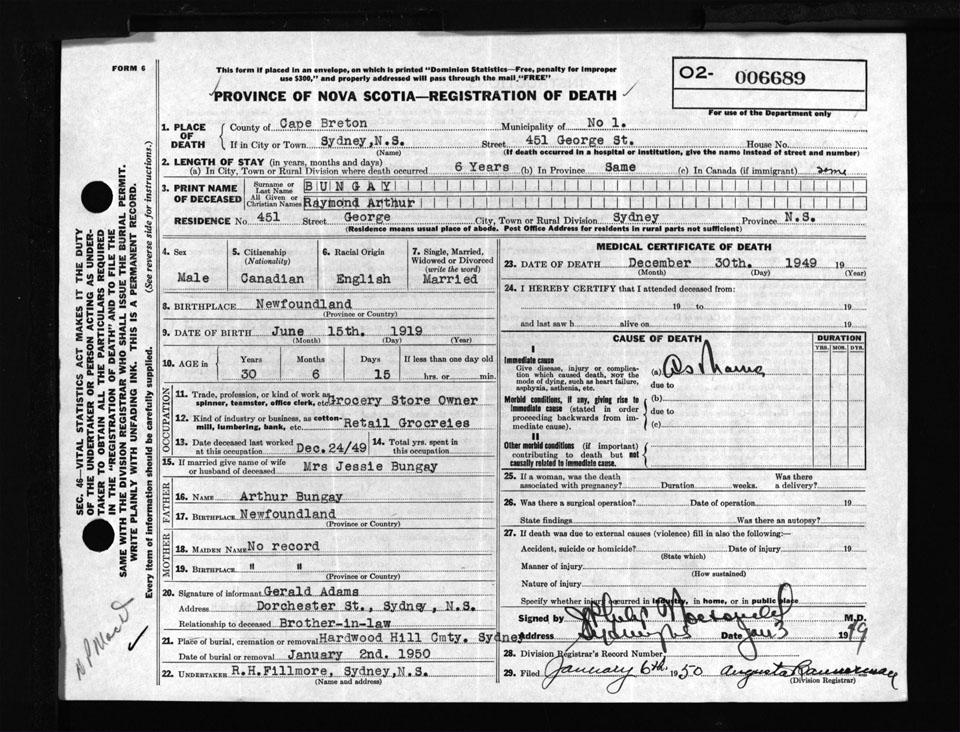 FORM 6
This form if placed in an envelope, on which is printed "Dominion Statistics—Free, penalty for improper
use $300," and properly addressed will pass through the mail "FREE"
PROVINCE OF NOVA SCOTIA—REGISTRATION OF DEATH
O2- 006689
For use of the Department only
1. PLACE OF DEATH
County of Cape Breton Municipality of No 1.
If in City or Town Sydney,N.S. Street 451 George St. House No.
(Name) (If death occurred in a hospital or institution, give the name instead of street and number)
2. LENGTH OF STAY (in years, months and days)
(a) In City, Town or Rural Division where death occurred 6 Years (b) In Province Same (c) In Canada (if immigrant)
3. PRINT NAME OF DECEASED
Surname or Last Name BUNGAY
All Given or Christian Names Raymond Arthur
RESIDENCE No. 451 Street George City, Town or Rural Division Sydney Province N.S.
(Residence means usual place of abode. Post Office Address for residents in rural parts not sufficient)
4. Sex Male
5. Citizenship (Nationality) Canadian
6. Racial Origin English
7. Single, Married, Widowed or Divorced (write the word) Married
8. BIRTHPLACE Newfoundland
(Province or Country)
9. DATE OF BIRTH June 15th. 1919
(Month) (Day) (Year)
10. AGE in Years Months Days If less than one day old
30 6 15 hrs. or min.
OCCUPATION
11. Trade, profession, or kind of work as spinner, teamster, office clerk, etc. Grocery Store Owner
12. Kind of industry or business, as cotton-mill, lumbering, bank, etc. Retail Grocreies
13. Date deceased last worked at this occupation Dec.24/49 14. Total yrs. spent in this occupation
15. If married give name of wife or husband of deceased Mrs Jessie Bungay
FATHER
16. NAME Arthur Bungay
17. BIRTHPLACE Newfoundland
(Province or Country)
MOTHER
18. MAIDEN NAME No record
19. BIRTHPLACE " "
(Province or Country)
20. Signature of informant Gerald Adams
Address Dorchester St., Sydney, N.S.
Relationship to deceased Brother-in-law
21. Place of burial, cremation or removal Hardwood Hill Cmty. Sydney
Date of burial or removal January 2nd. 1950
22. UNDERTAKER R.H.Fillmore, Sydney,N.S.
(Name and address)
MEDICAL CERTIFICATE OF DEATH
23. DATE OF DEATH December 30th. 1949 19
(Month) (Day) (Year)
24. I HEREBY CERTIFY that I attended deceased from:
19 to 19
and last saw h alive on 19
CAUSE OF DEATH DURATION
YRS. MOS. DYS.
I
Immediate cause
Give disease, injury or complication which caused death, NOT the mode of dying, such as heart failure, asphyxia, asthenia, etc.
(a) Asthma
due to
Morbid conditions, if any, giving rise to immediate cause (stated in order proceeding backwards from immediate cause).
(b)
due to
(c)
II
Other morbid conditions (if important) contributing to death but not causally related to immediate cause.
25. If a woman, was the death associated with pregnancy? Duration weeks. Was there a delivery?
26. Was there a surgical operation? Date of operation 19
State findings Was there an autopsy?
27. If death was due to external causes (violence) fill in also the following:—
Accident, suicide or homicide? Date of injury 19
(State which)
Manner of injury
(How sustained)
Nature of injury
Specify whether injury occurred in industry, in home, or in public place
Signed by M.D.
Address Sydney NS Date Jan 3 19
28. Division Registrar's Record Number
29. Filed January 6th 1950 Augusta
(Division Registrar)
SEC. 46—VITAL STATISTICS ACT MAKES IT THE DUTY
OF THE UNDERTAKER OR PERSON ACTING AS UNDER-
TAKER TO OBTAIN ALL THE PARTICULARS REQUIRED
IN THE "REGISTRATION OF DEATH" AND TO FILE THE
SAME WITH THE DIVISION REGISTRAR WHO SHALL ISSUE THE BURIAL PERMIT.
WRITE PLAINLY WITH UNFADING INK. THIS IS A PERMANENT RECORD.
Every item of information should be carefully supplied. (See reverse side for instructions.)